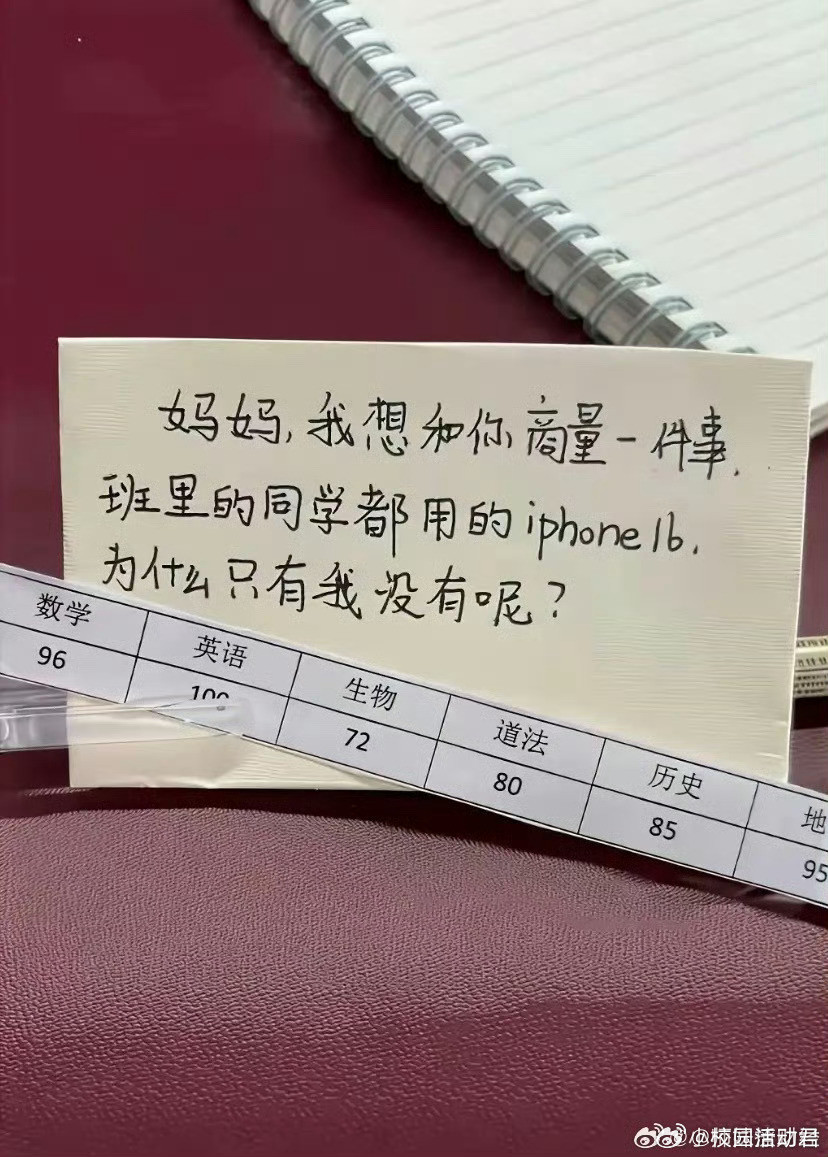 妈妈,我想和你商量一件事.
班里的同学都用的iphone16.
为什么只有我没有呢?
数学 英语 生物 道法 历史 地
96 100 72 80 85 95